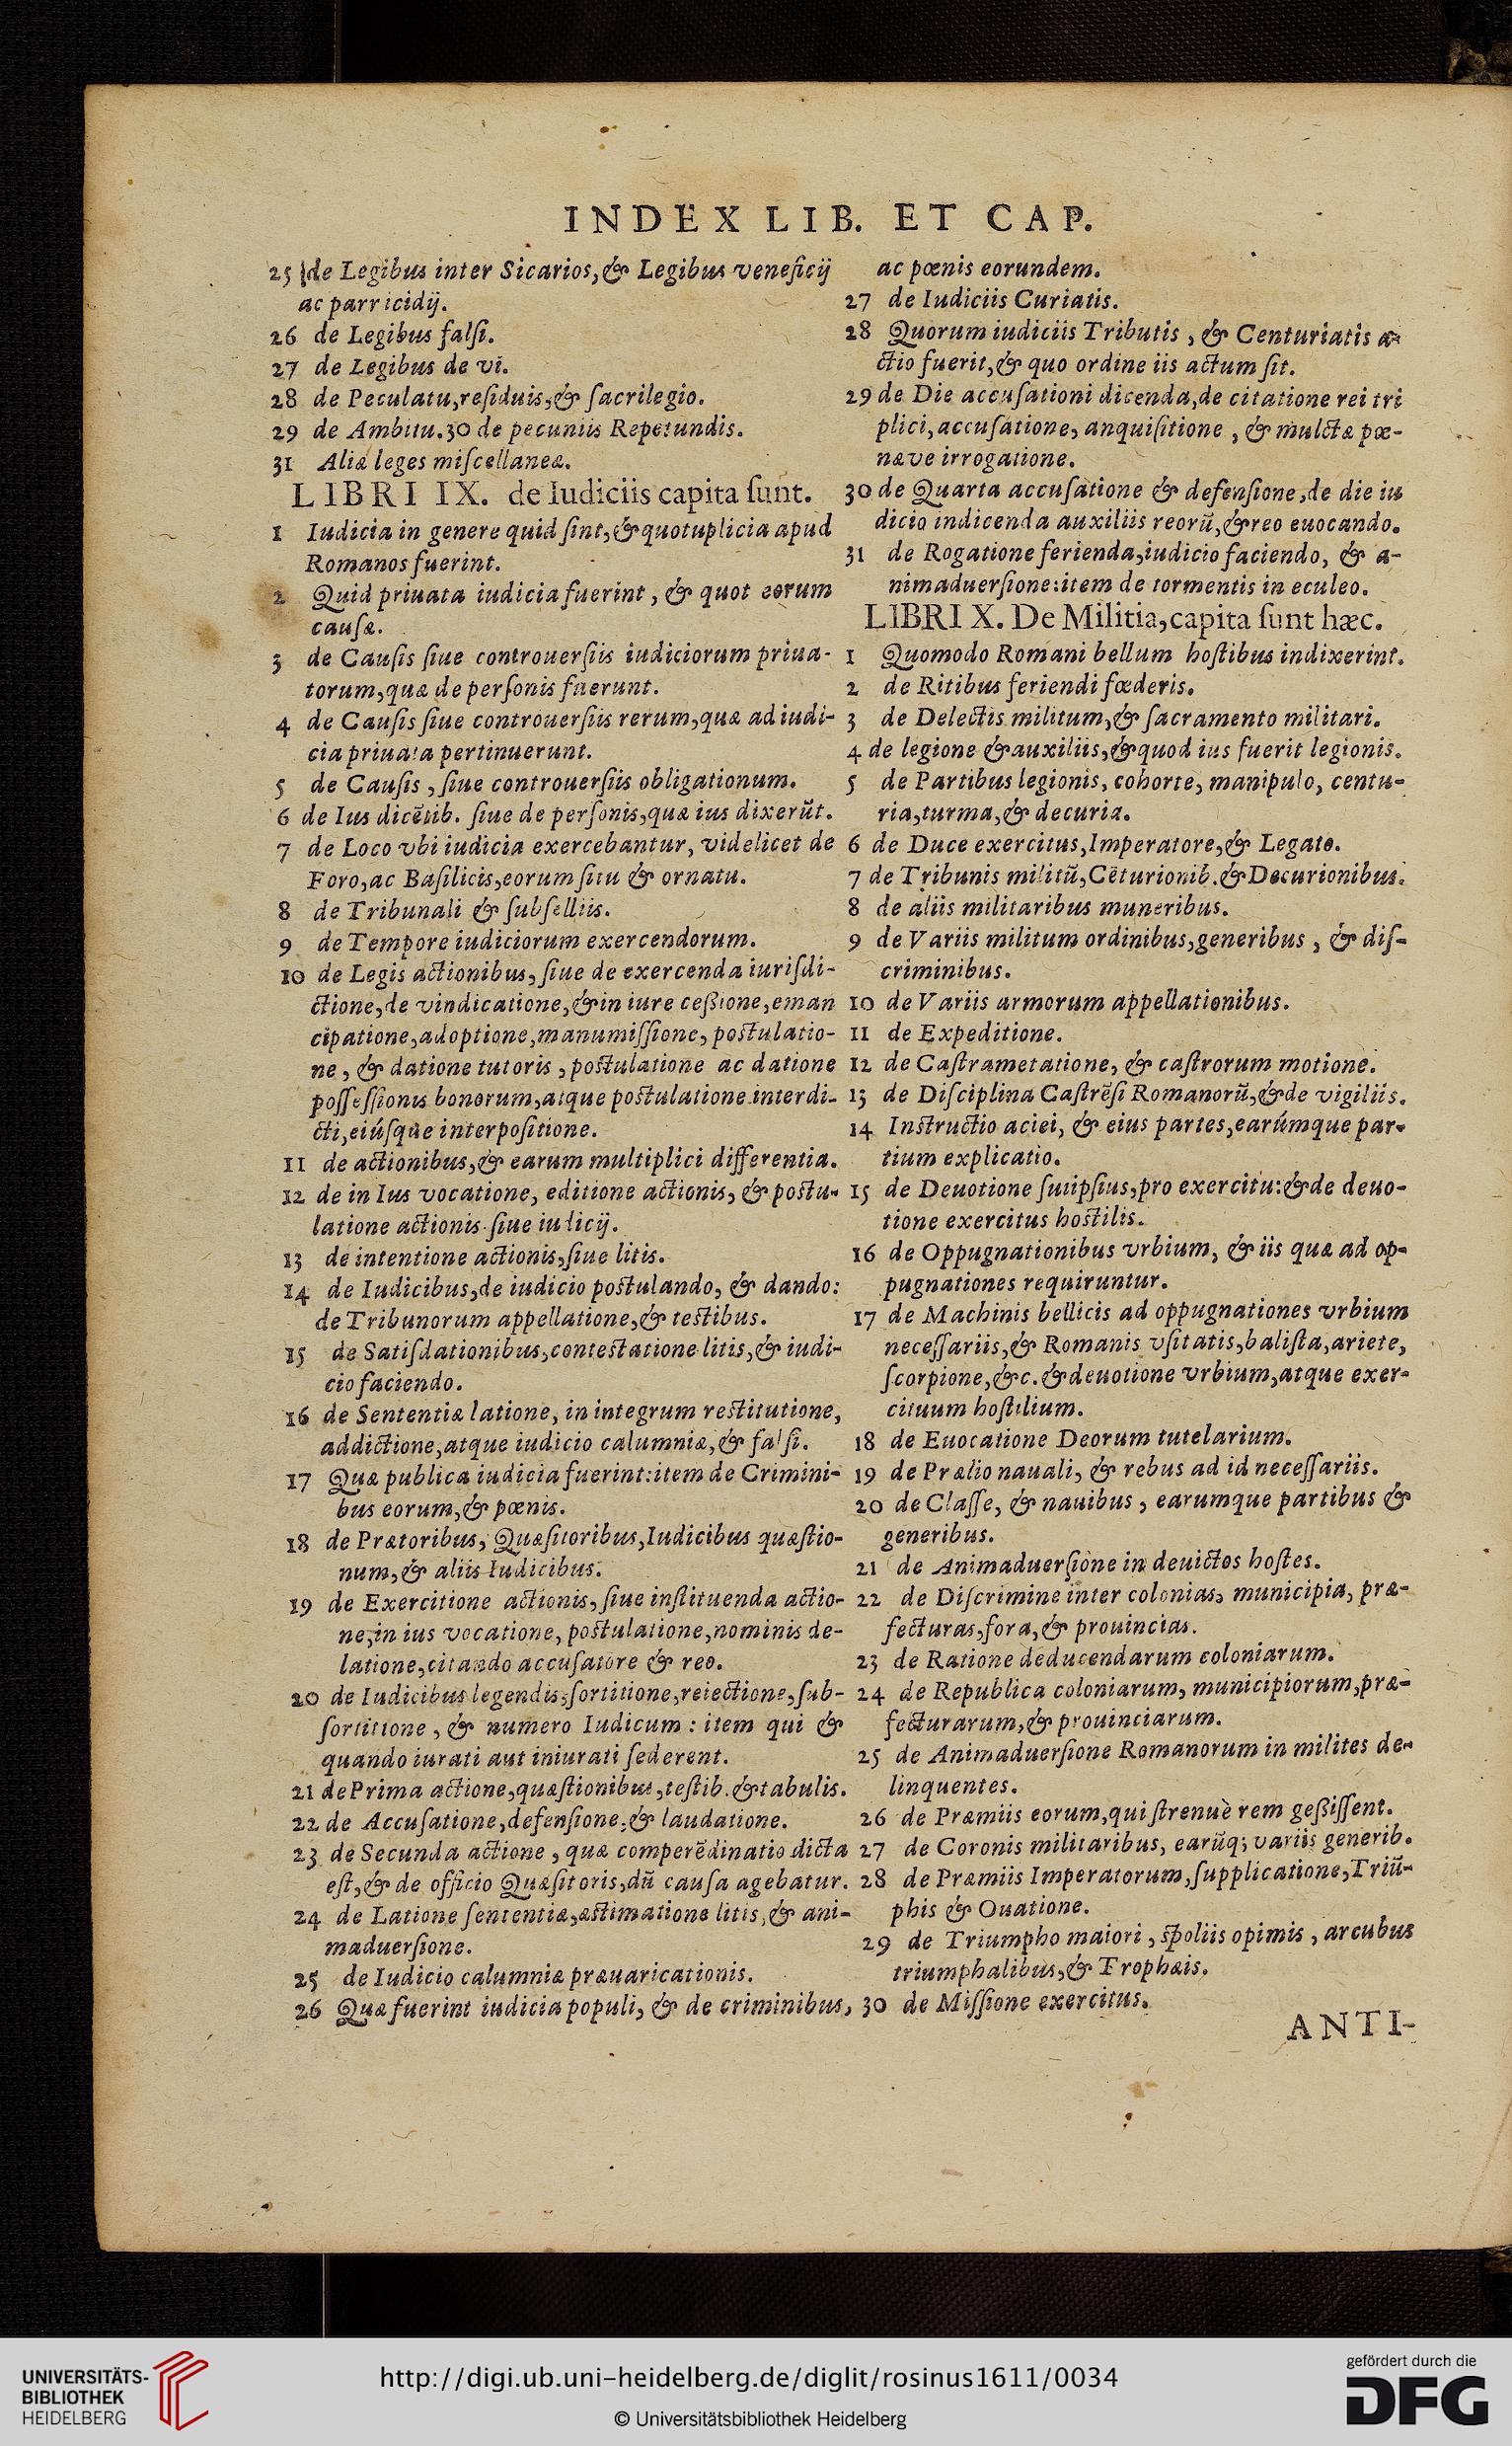 INDEX LIB. ET CAP.
25 de Legibus inter Sicarios, & Legibus veneficij
ac parricidij.
26 de Legibus falſi.
27 de Legibus de vi.
28 de Peculatu, reſiduis, & ſacrilegio.
29 de Ambitu. 30 de pecuniis Repetundis.
31 Aliæ leges miſcellaneæ.
LIBRI IX. de Iudiciis capita ſunt.
1 Iudicia in genere quid ſint, & quotuplicia apud
Romanos fuerint.
2 Quid priuata iudicia fuerint, & quot eorum
cauſæ.
3 de Cauſis ſiue controuerſiis iudiciorum priua-
torum, quæ de perſonis fuerunt.
4 de Cauſis ſiue controuerſiis rerum, quæ ad iudi-
cia priuata pertinuerunt.
5 de Cauſis, ſiue controuerſiis obligationum.
6 de Ius dicẽtib. ſiue de perſonis, quæ ius dixerũt.
7 de Loco vbi iudicia exercebantur, videlicet de
Foro, ac Baſilicis, eorum ſitu & ornatu.
8 de Tribunali & ſubſelliis.
9 de Tempore iudiciorum exercendorum.
10 de Legis actionibus, ſiue de exercenda iuriſdi-
ctione, de vindicatione, & in iure ceßione, eman
cipatione, adoptione, manumiſſione, poſtulatio-
ne, & datione tutoris, poſtulatione ac datione
poſſeſſionis bonorum, atque poſtulatione interdi-
cti, eiúſque interpoſitione.
11 de actionibus, & earum multiplici differentia.
12 de in Ius vocatione, editione actionis, & poſtu-
latione actionis ſiue iudicij.
13 de intentione actionis, ſiue litis.
14 de Iudicibus, de iudicio poſtulando, & dando:
de Tribunorum appellatione, & teſtibus.
15 de Satiſdationibus, conteſtatione litis, & iudi-
cio faciendo.
16 de Sententiæ latione, in integrum reſtitutione,
addictione, atque iudicio calumniæ, & falſi.
17 Quæ publica iudicia fuerint: item de Crimini-
bus eorum, & pœnis.
18 de Prætoribus, Quæſitoribus, Iudicibus quæſtio-
num, & aliis Iudicibus.
19 de Exercitione actionis, ſiue inſtituenda actio-
ne, in ius vocatione, poſtulatione, nominis de-
latione, citando accuſatore & reo.
20 de Iudicibus legendis, ſortitione, reiectione, ſub-
ſortitione, & numero Iudicum: item qui &
quando iurati aut iniurati ſederent.
21 de Prima actione, quæſtionibus, teſtib. & tabulis.
22 de Accuſatione, defenſione, & laudatione.
23 de Secunda actione, quæ comperẽdinatio dicta
eſt, & de officio Quæſitoris, dũ cauſa agebatur.
24 de Latione ſententiæ, æſtimatione litis, & ani-
maduerſione.
25 de Iudicio calumniæ præuaricationis.
26 Quæ fuerint iudicia populi, & de criminibus,
ac pœnis eorundem.
27 de Iudiciis Curiatis.
28 Quorum iudiciis Tributis, & Centuriatis a-
ctio fuerit, & quo ordine iis actum ſit.
29 de Die accuſationi dicenda, de citatione rei tri
plici, accuſatione, anquiſitione, & mulctæ pœ-
næve irrogatione.
30 de Quarta accuſatione & defenſione, de die iu
dicio indicenda auxiliis reorũ, & reo euocando.
31 de Rogatione ferienda, iudicio faciendo, & a-
nimaduerſione: item de tormentis in eculeo.
LIBRI X. De Militia, capita ſunt hæc.
1 Quomodo Romani bellum hoſtibus indixerint.
2 de Ritibus feriendi fœderis.
3 de Delectis militum, & ſacramento militari.
4 de legione & auxiliis, & quod ius fuerit legionis.
5 de Partibus legionis, cohorte, manipulo, centu-
ria, turma, & decuria.
6 de Duce exercitus, Imperatore, & Legato.
7 de Tribunis militũ, Cẽturionib. & Decurionibus.
8 de aliis militaribus muneribus.
9 de Variis militum ordinibus, generibus, & diſ-
criminibus.
10 de Variis armorum appellationibus.
11 de Expeditione.
12 de Caſtrametatione, & caſtrorum motione.
13 de Diſciplina Caſtrẽſi Romanorũ, & de vigiliis.
14 Inſtructio aciei, & eius partes, earúmque par-
tium explicatio.
15 de Deuotione ſuiipſius, pro exercitu: & de deuo-
tione exercitus hoſtilis.
16 de Oppugnationibus vrbium, & iis quæ ad op-
pugnationes requiruntur.
17 de Machinis bellicis ad oppugnationes vrbium
neceſſariis, & Romanis vſitatis, baliſta, ariete,
ſcorpione, &c. & deuotione vrbium, atque exer-
cituum hoſtilium.
18 de Euocatione Deorum tutelarium.
19 de Prælio nauali, & rebus ad id neceſſariis.
20 de Claſſe, & nauibus, earumque partibus &
generibus.
21 de Animaduerſione in deuictos hoſtes.
22 de Diſcrimine inter colonias, municipia, præ-
fecturas, fora, & prouincias.
23 de Ratione deducendarum coloniarum.
24 de Republica coloniarum, municipiorum, præ-
fecturarum, & prouinciarum.
25 de Animaduerſione Romanorum in milites de-
linquentes.
26 de Præmiis eorum, qui ſtrenuè rem geßiſſent.
27 de Coronis militaribus, earũq; variis generib.
28 de Præmiis Imperatorum, ſupplicatione, Triũ-
phis & Ouatione.
29 de Triumpho maiori, ſpoliis opimis, arcubus
triumphalibus, & Trophæis.
30 de Miſſione exercitus.
ANTI-
UNIVERSITÄTS-
BIBLIOTHEK
HEIDELBERG
http://digi.ub.uni-heidelberg.de/diglit/rosinus1611/0034
© Universitätsbibliothek Heidelberg
gefördert durch die
DFG